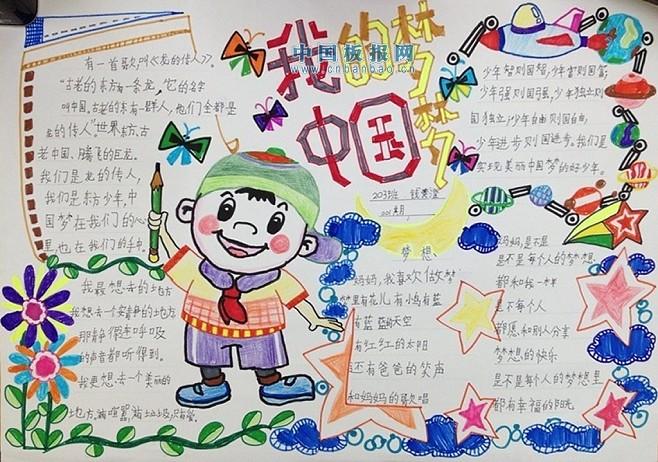 我的梦
中国梦
中国板报网
www.cnbanbao.cn
203班 钱
有一首歌,叫《龙的传人》。
"古老的东方有一条龙,它的名字
叫中国。古老的东方有一群人,他们全都是
龙的传人"。世界东方,古
老中国、腾飞的巨龙。
我们是龙的传人,
我们是东方少年,中
国梦在我们的心
里,也在我们的手中。
我最想去的地方
我想去一个安静的地方
那静得连呼吸
的声音都听得到。
我更想去一个美丽的
地方,
少年智则国智,少年富则国富;
少年强则国强,少年独立则
国独立;少年自由则国自由,
少年进步则国进步。我们是
实现美丽中国梦的好少年。
梦想
妈妈,我喜欢做梦
梦里有花儿 有小鸟有蓝
有蓝蓝的天空
有红红的太阳
还有爸爸的笑声
和妈妈的歌唱
妈妈,是不是
是不是每个人的梦想
都和我一样
是不每个人
都愿和别人分享
梦想的快乐
是不是每个人的梦想里
都有幸福的阳光